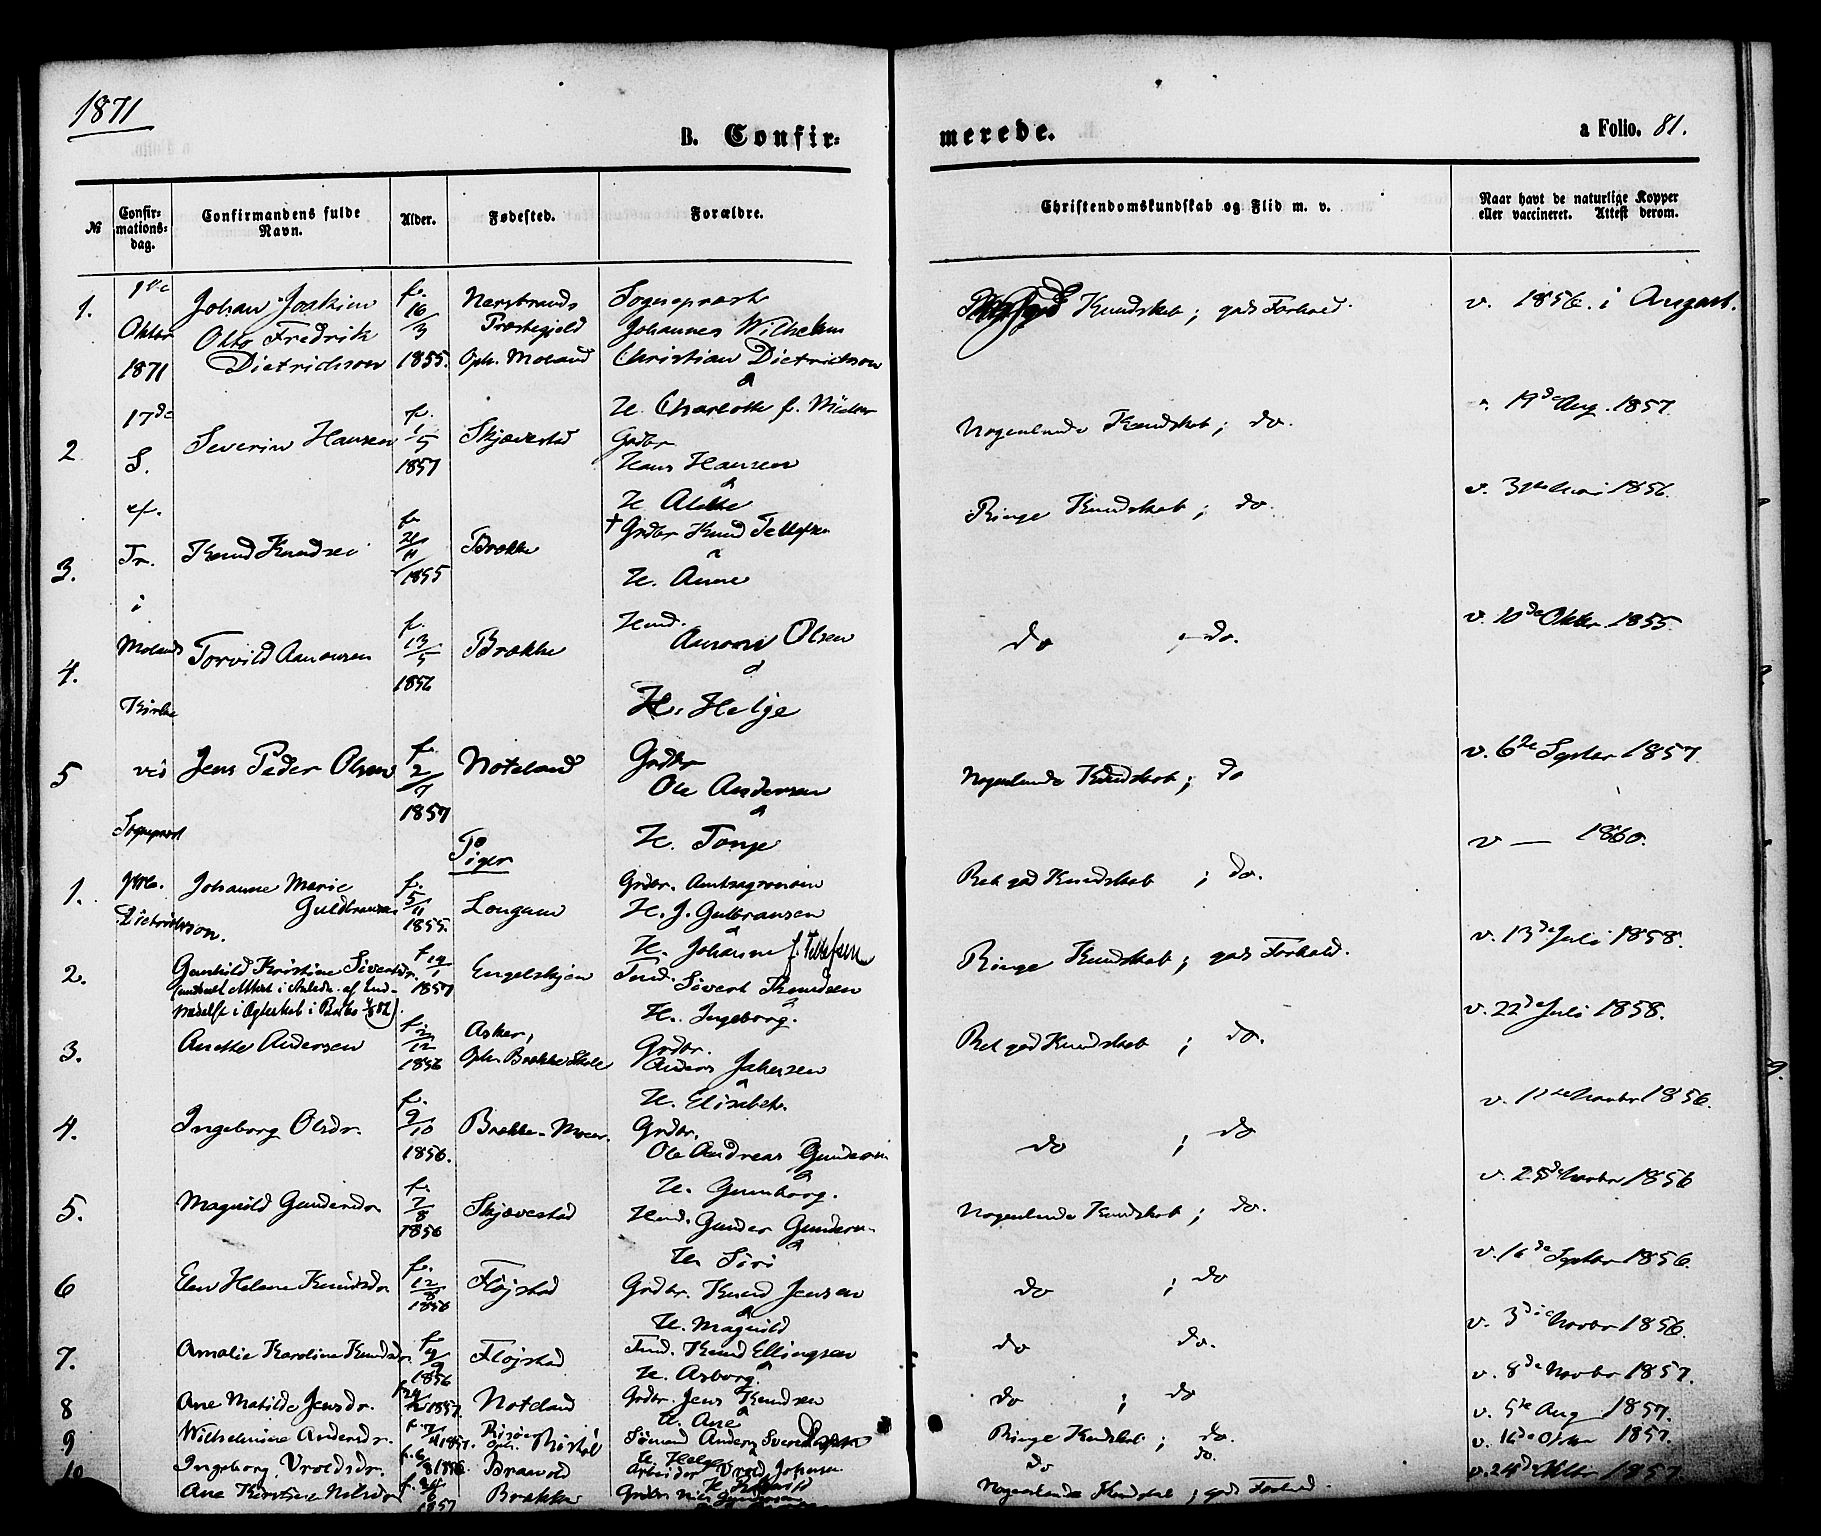 1871
B. Confir-
merede.
a Folio. 81.
№
Confir-
mations-
dag.
Confirmandens fulde
Navn.
Alder.
Fødested.
Forældre.
Christendomskundskab og Flid m. v.
Naar havt de naturlige Kopper
eller vaccineret. Attest derom.
1.
1ste
Oktbr
1871
Johan Joakim
Otto Fredrik
Dietrichson
f.
16/3
1855.
Nerstrands
Præstegjeld
Oph. Moland
Sogneprest
Johannes Wilhelm
Christian Dietrichson
&
H. Charlotte f.
Kundskab; god Forhold.
v. 1856. i August.
2
17de
S.
Severin Hansen
f.
1/5
1857
Skjævestad
Grdbr
Hans Hansen
&
H. Alette
Nogenlunde Kundskab; do.
v. 19de Aug. 1857.
3.
ef.
Tr.
i
Knud Knudsen
f.
21/11
1855
Brække
† Grdbr Knud Tellefsen
&
H. Anne
Ringe Kundskab; do.
v. 1856.
4.
Molands
Kirke
Torvild Aanonsen
f.
13/5
1856
Brække
Hmd.
Aanon Olsen
&
H. Helje
do ; do.
v. 10de Oktbr. 1855.
5
ved
Sogneprest
Jens Peder Olsen
f.
2/7
1857
Noteland
Grdbr
Ole Andersen
&
H. Tonje
Nogenlunde Kundskab; do
v. 6te Septbr 1857.
Piger
1.
Dietrichson.
Johanne Marie
Guldbransen
f.
5/11
1855.
Longum
Grdbr. Amtsagronom
H. J. Gulbransen
&
H. Johanne f. Tellefsen
Ret god Kundskab ; do.
v — 1860.
2.
Gunhild Kristine Sivertsdr.
f. 19/1
1857
Engelskjøn
Sivert Knudsen
&
H. Ingeborg.
Ringe Kundskab; god Forhold.
v. 13de Juli 1858.
3.
Anette Andersen
1856
Asker,
Oph. Brække Skole
Grdbr.
Anders Jakobsen
&
H. Elisabeth.
Ret god Kundskab ; do.
v. 22de Juli 1858.
4.
Ingeborg Olsdr.
f.
9/10
1856.
Brække-Moen.
Grdbr.
Ole Andreas Gundersen
&
H. Gunborg.
do ; do
v. Novbr 1856.
5.
Magnild Gundersdr
f.
7/8
1856
Skjævestad
Hmd. Gunder Gundersen
&
H. Siri
Nogenlunde Kundskab; do.
v. 25de Novbr 1856
6
Elen Helene Knudsdr.
f.
12/8
1856
Fløjstad
Grdbr. Knud Jensen
&
H. Magnild
do ; do
v. 16de Septbr 1856.
7.
Amalie Karoline Knudsdr.
1856
Fløjstad
Knud Ellingsen
&
H. Asborg.
do do.
v. 3die Novbr 1856.
8
Ane Matilde Jensdr.
1857.
Noteland
Grdbr. Jens Knudsen
&
H. Ane
do ; do
v. 8de Novbr 1857.
9
Wilhelmine Andersdr.
1857.
Sømand Anders
H. Helge
Ringe Kundskab; do.
v. 5te Aug 1857.
10
Ingeborg Vroldsdr.
1856
Brawold
Arbeider Vrold Johnsen
do do.
v. 16de 1857.
Ane Nilsdr
1857
Brække
Grdbr. Nils Gundersen
Nogenlunde Kundskab; god Forhold.
v. 24de Oktbr 1857.